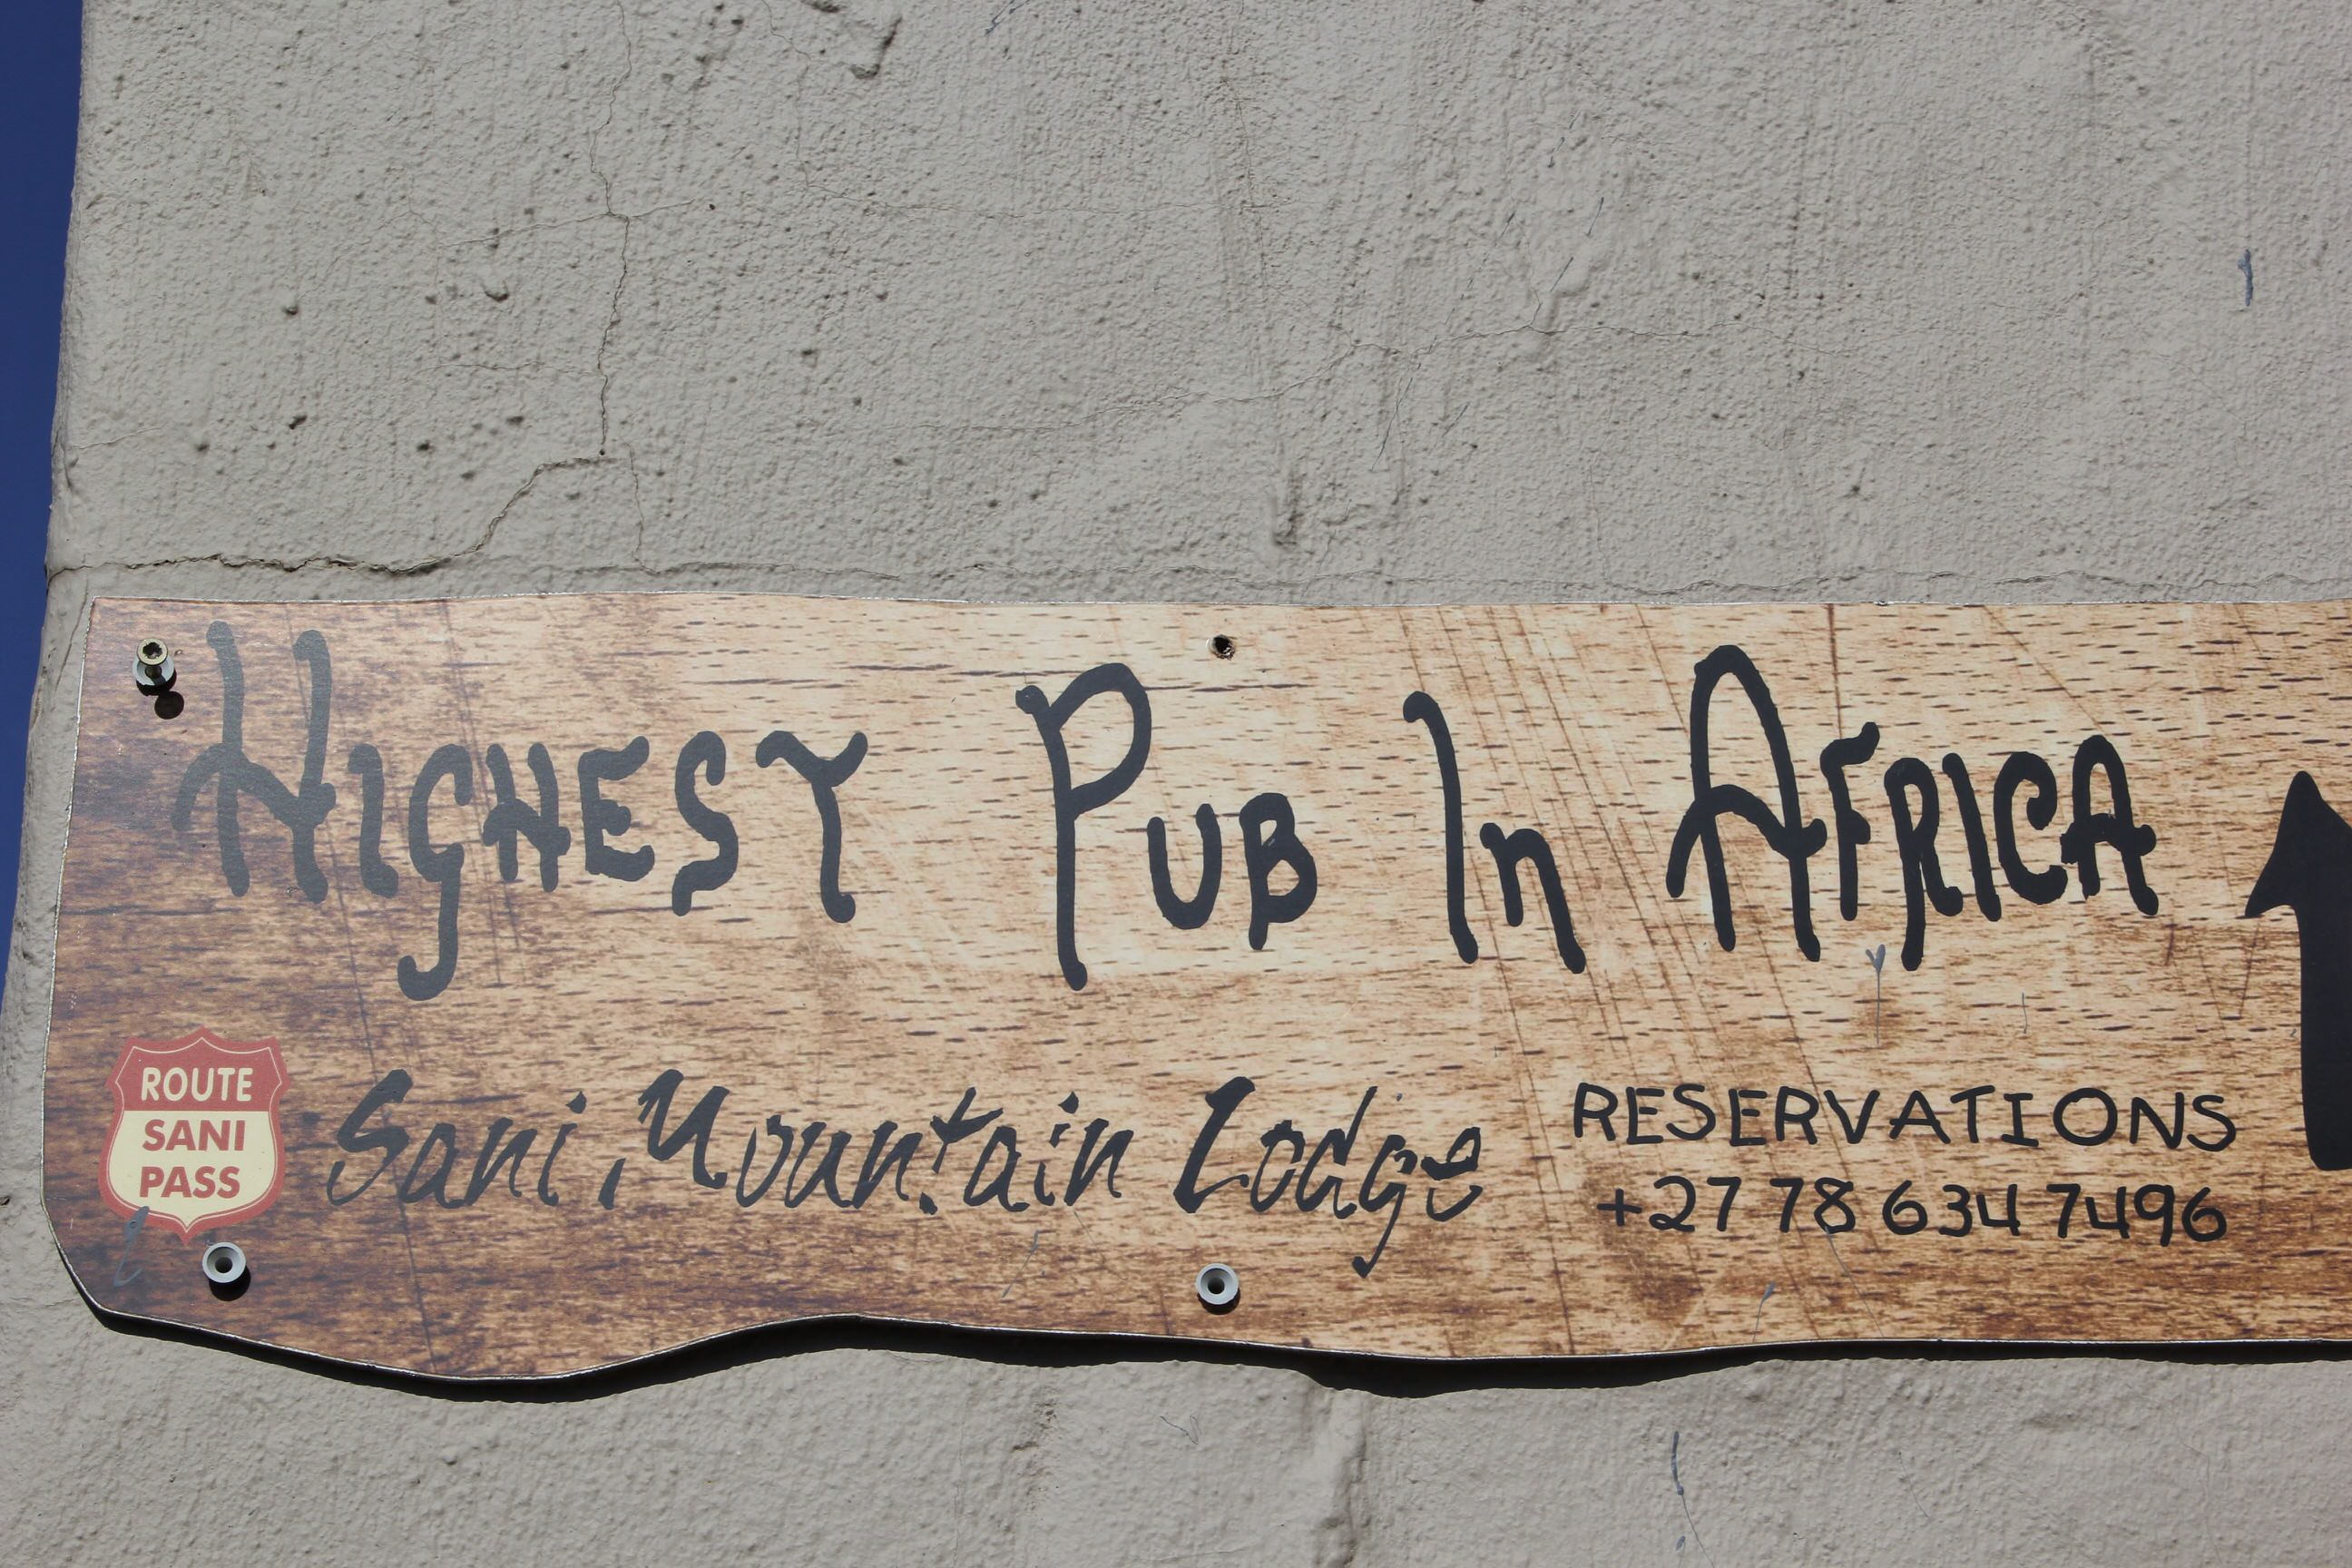 Highest Pub In Africa
ROUTE
SANI
PASS
Sani Mountain Lodge
RESERVATIONS
+27 78 634 7496